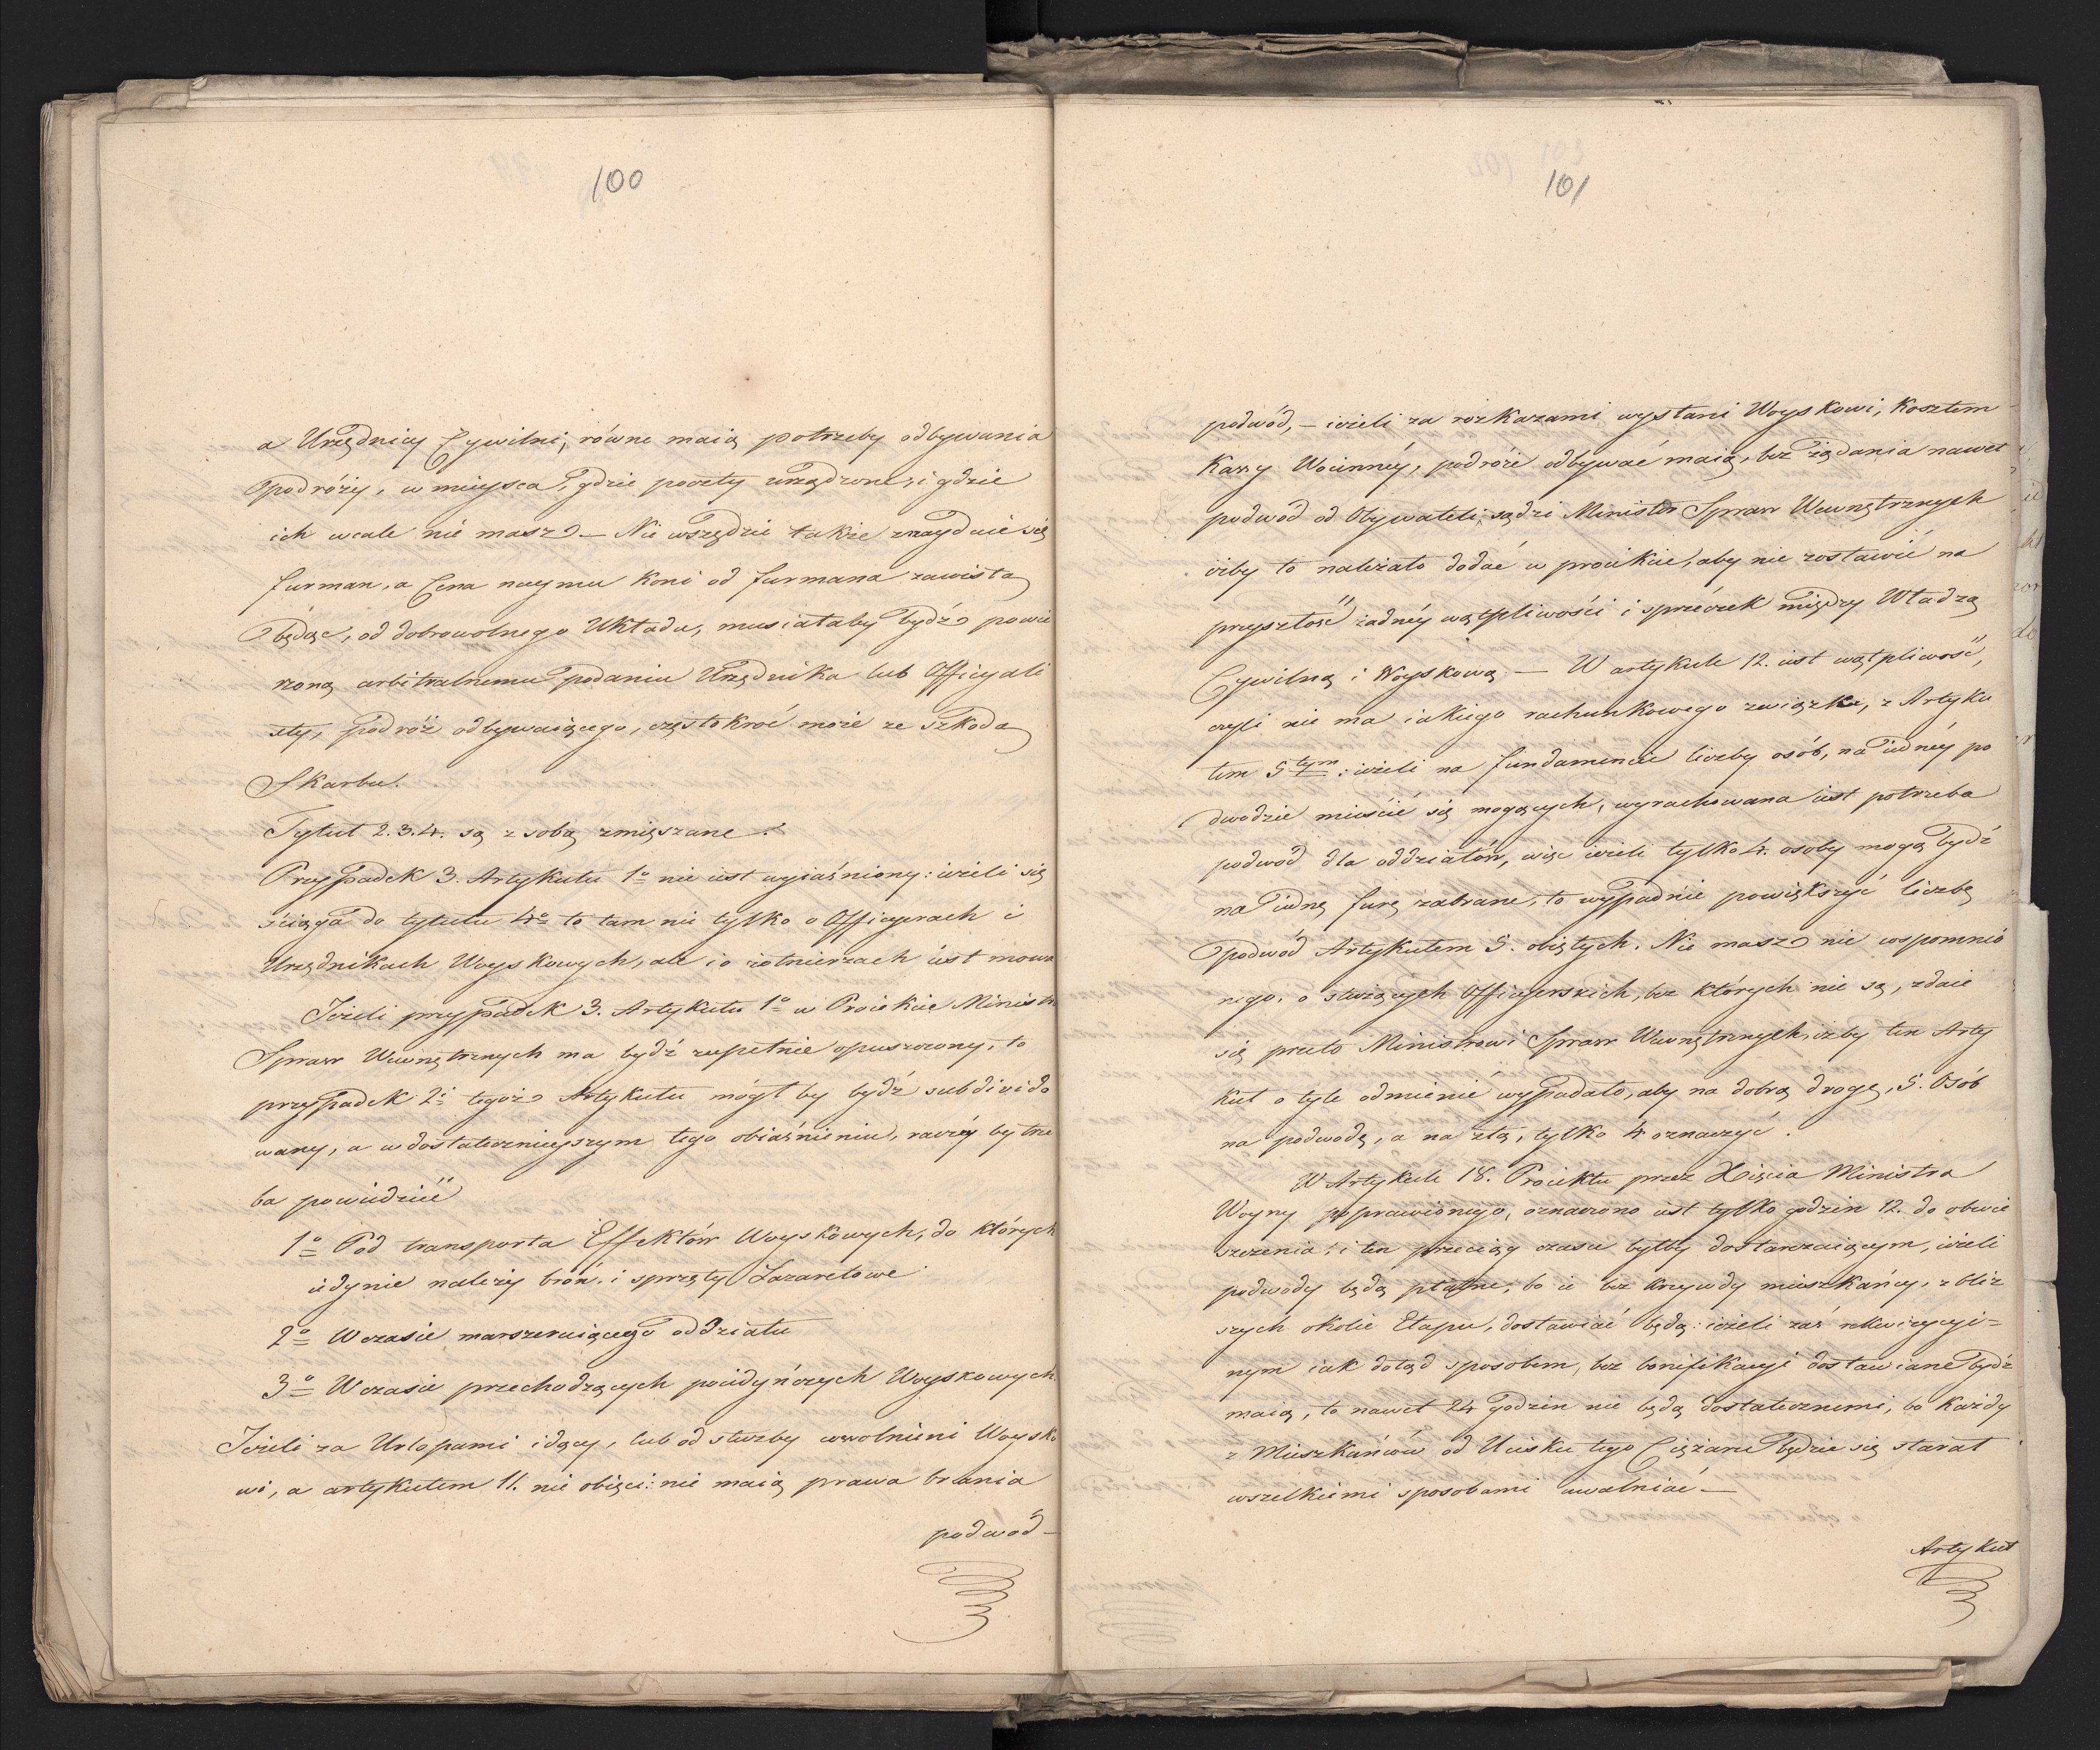 100
a Urzędnicy Cywilni, równe maią potrzeby odbywania
podróży, w mieysca, gdzie poczty urządzone, i gdzie
ich wcale nie masz — Nie wszędzie także znayduie się
furman, a Cena naymu koni od furmana zawisła
będąc, od dobrowolnego Układu, musiałaby bydź powie
rzoną arbitralnemu podaniu Urzędnika lub Officyali
sty, podróż odbywaiącego, częstokroć może ze szkodą
Skarbu.
Tytuł 2. 3. 4. są z sobą zmięszane.
Przypadek 3. Artykułu 1º nie iest wyiaśniony: ieżeli się
ściąga do tytułu 4º to tam nie tylko o Officyerach i
Urzędnikach Woyskowych, ale i o żołnierzach iest mowa
Jeżeli przypadek 3. Artykułu 1º w Proiekcie Ministra
Spraw Wewnętrznych ma bydź zupełnie opuszczony, to
przypadek 2i tegoż Artykułu mógł by bydź subdivido
wany, a w dostatecznieyszym tego obiaśnieniu, raczéy by trze
ba powiedzieć
1º Pod transporta Effektów Woyskowych, do których
iedynie należy broń i sprzęty Lazaretowe
2º W czasie marszeruiącego oddziału
3º W czasie przechodzących poiedyńczych Woyskowych
Jeżeli za Urlopami idący, lub od służby uwolnieni Woysko
wi, a artykułem 11. nie obięci: nie maią prawa brania
podwod —
101
podwód, — ieżeli za rozkazami wysłani Woyskowi, kosztem
Kassy Woienney, podróże odbywać maią, bez żądania nawet
podwód od Obywateli, sądzi Minister Spraw Wewnętrznych
iżby to należało dodać w proiekcie, aby nie zostawić na
przyszłość żadnéy wątpliwości i sprzeczek między Władzą
Cywilną i Woyskową — W artykule 12. iest wątpliwość,
czyli nie ma iakiego rachunkowego związku, z Artyku
łem 5tym: ieżeli na fundamencie liczby osób, na iednéy po
dwodzie mieścić się mogących, wyrachowana iest potrzeba
podwod dla oddziałów, więc ieżeli tylko 4. osoby mogą bydź
na iedną furę zabrane, to wypadnie powiększyć liczbę
podwód Artykułem 5. obiętych. Nie masz nic wspomnio
nego, o służących Officyerskich, bez których nie są, zdaie
się przeto Ministrowi Spraw Wewnętrznych, iżby ten Arty
kuł o tyle odmienić wypadało, aby na dobrą drogę, 5. Osób
na podwodę, a na złą, tylko 4 oznaczyć.
W Artykule 18. Proiektu przez Xięcia Ministra
Woyny poprawionego, oznaczono iest tylko godzin 12. do obwie
szczenia; i ten przeciąg czasu byłby dostarczaiącym, ieżeli
podwody będą płatne, bo ie bez krzywdy mieszkańcy, z bliż
szych okolic Etapu, dostawiać będą: ieżeli zaś rekwizycyi=
nym iak dotąd sposobem, bez bonifikacyi dostawiane bydź
maią, to nawet 24 godzin nie będą dostatecznemi, bo każdy
z Mieszkańców od Ucisku tego Ciężaru będzie się starał
wszelkiemi sposobami uwalniać —
Artykuł